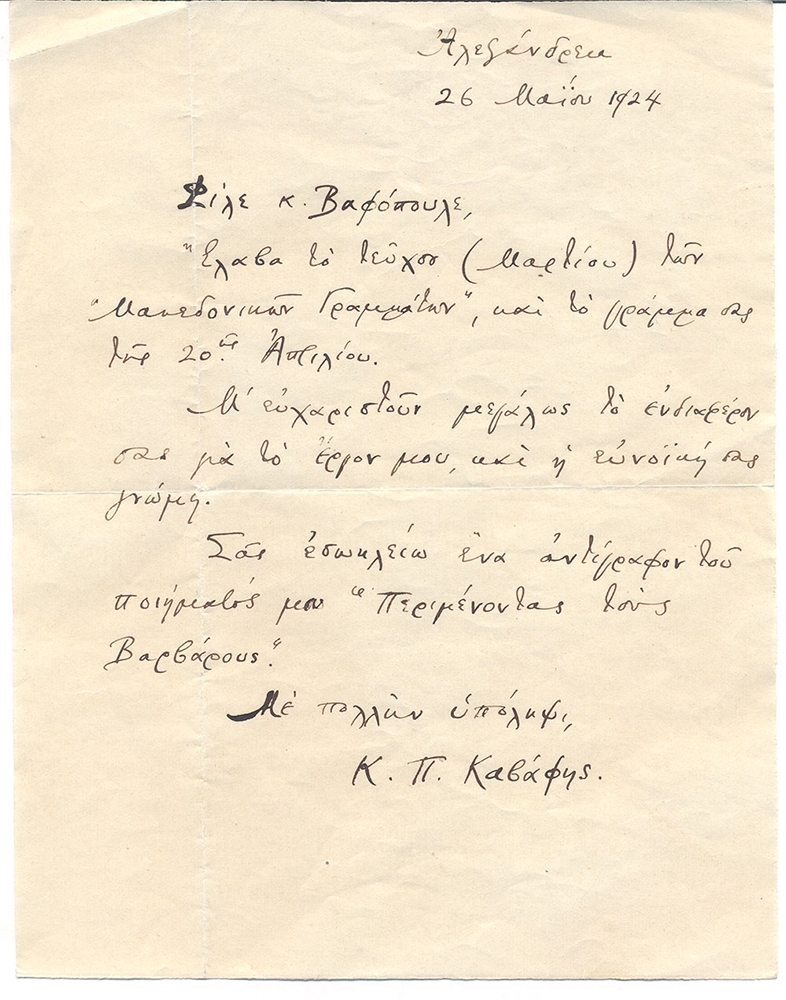 Ἀλεξάνδρεια
26 Μαΐου 1924
Φίλε κ. Βαφόπουλε,
Ἔλαβα τὸ τεῦχος (Μαρτίου) τῶν
"Μακεδονικῶν Γραμμάτων", καὶ τὸ γράμμα σας
τῆς 20ῆς Ἀπριλίου.
Μ' εὐχαριστοῦν μεγάλως τὸ ἐνδιαφέρον
σας γιὰ τὸ ἔργον μου, καὶ ἡ εὐνοϊκή σας
γνώμη.
Σᾶς ἐσωκλείω ἕνα ἀντίγραφον τοῦ
ποιήματός μου "Περιμένοντας τοὺς
Βαρβάρους".
Μὲ πολλὴν ὑπόληψι,
Κ. Π. Καβάφης.